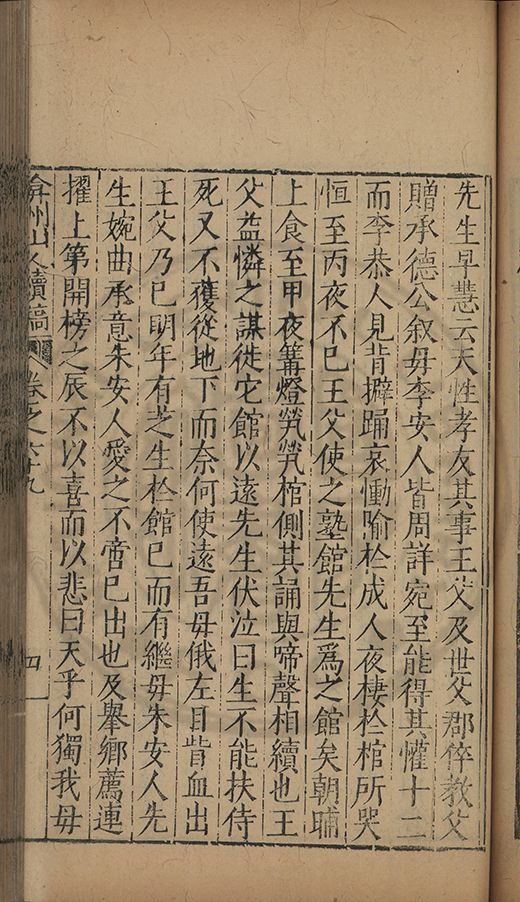 先生早慧云天性孝友其事王父及世父郡倅敎父
贈承德公叙毋李安人皆周詳宛至能得其懽十二
而李恭人見背擗踊哀慟喻於成人夜棲於棺所哭
恒至丙夜不巳王父使之塾館先生爲之館矣朝晡
上食至甲夜篝燈煢煢棺側其誦與啼聲相續也王
父益憐之謀徙它館以遠先生伏泣曰生不能扶侍
死又不獲從地下而奈何使遠吾毋俄左目眥血出
王父乃巳明年有芝生於館巳而有繼毋朱安人先
生婉曲承意朱安人愛之不啻巳出也及舉鄉薦連
擢上第開榜之辰不以喜而以悲曰天乎何獨我毋
弇州山人續稿 卷之六十九 四